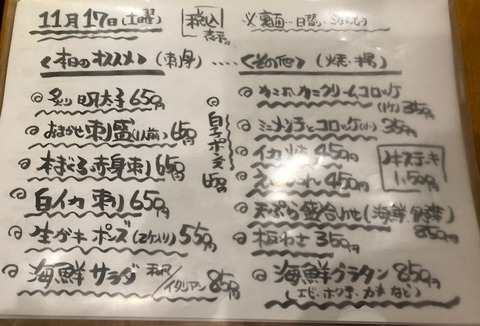 11月17日(土曜)
税込
表示。
〈本日のオススメ〉(刺身)
◎炙り明太子650円
◎おまかせ刺盛(1人前)650円
◎本まぐろ赤身刺650円
◎白イカ刺650円
◎生ガキポン酢(2ケ入り)550円
◎海鮮サラダ 和風/イタリアン850円
白子ポン酢
650円
〈その他〉(焼・揚)
◎カニホカニクリームコロッケ
350円
◎ミニメンチとコロッケ350円
◎イカ焼450円
450円
◎天ぷら盛合せ(海鮮・野菜)
850円
◎板わさ350円
◎海鮮グラタン850円
(エビ・ホタテ・カキなど)
ステーキ
1,500円